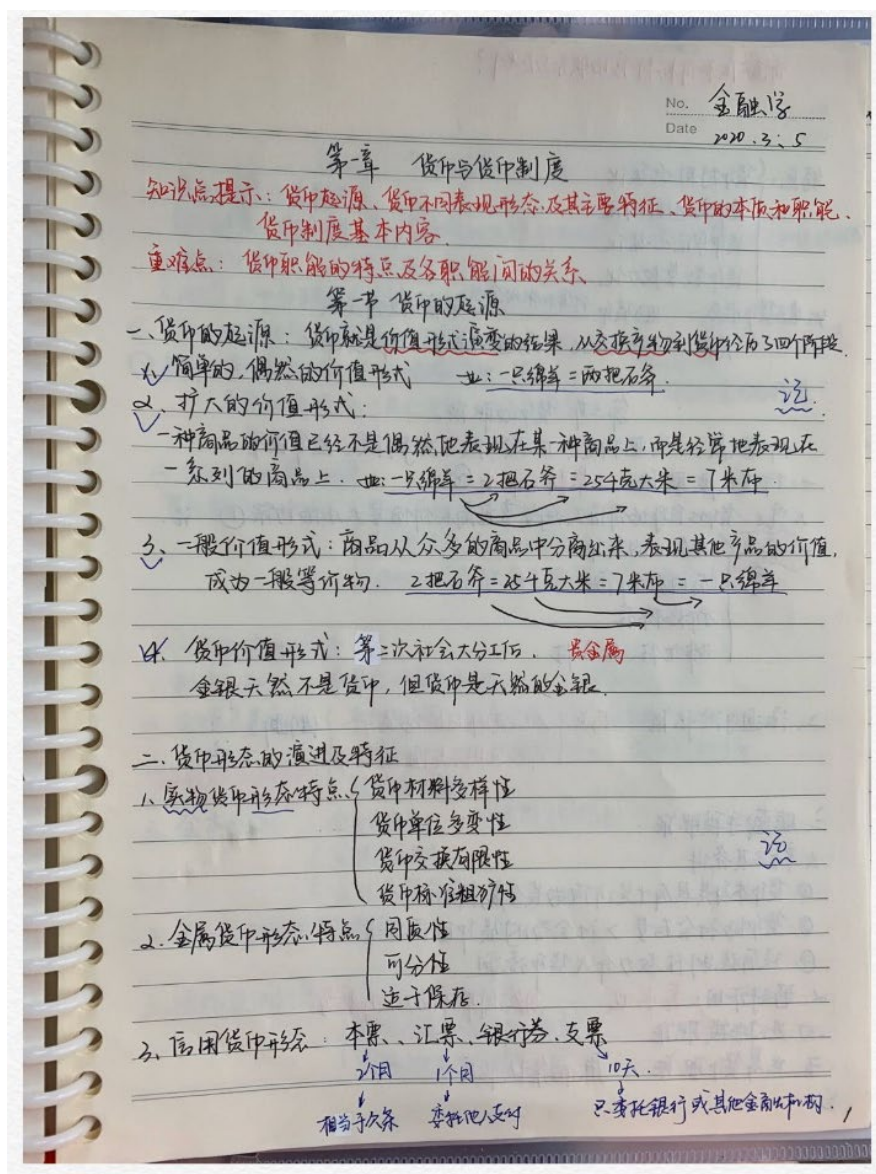 No. 金融学
Date 2020.3.5
第一章 货币与货币制度
知识点提示:货币起源、货币不同表现形态及其主要特征、货币的本质和职能、
货币制度基本内容.
重难点:货币职能的特点及各职能间的关系、
第一节 货币的起源
一、货币的起源:货币就是价值形式演变的结果,从交换产物到货币经历了四个阶段.
1、简单的,偶然的价值形式 如:一只绵羊=两把石斧.
记.
2、扩大的价值形式:
一种商品的价值已经不是偶然地表现在某一种商品上,而是经常地表现在
一系列的商品上. 如:一只绵羊=2把石斧=25千克大米=7米布.
3、一般价值形式:商品从众多的商品中分离出来,表现其他产品的价值,
成为一般等价物. 2把石斧=25千克大米=7米布=一只绵羊
4、货币价值形式:第二次社会大分工后. 贵金属
金银天然不是货币,但货币是天然的金银.
二、货币形态的演进及特征
1、实物货币形态特点{货币材料多样性
货币单位多变性
货币交换有限性
记
货币标准粗犷性
2、金属货币形态,特点{同质性
可分性
适于保存.
3、信用货币形态:本票、汇票、银行券、支票
2个月 1个月 10天.
相当于欠条 委托他人支付 只委托银行或其他金融机构.
1